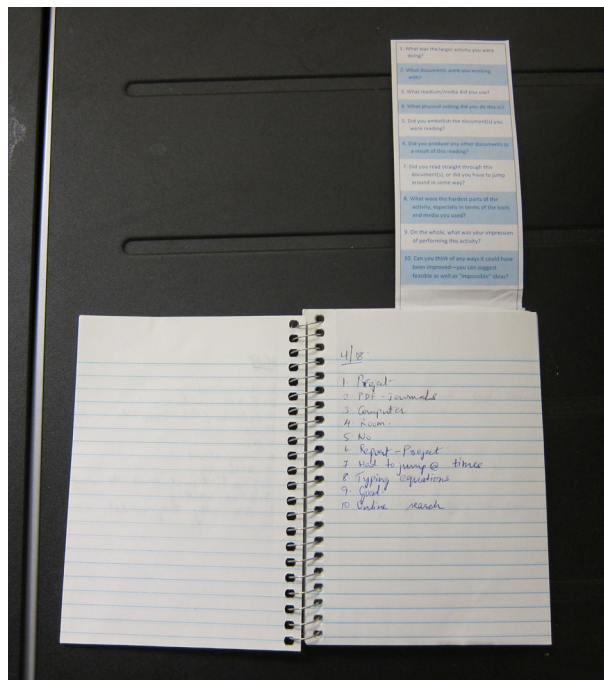 1. What was the larger activity you were
doing?
2. What documents were you working
with?
3. What medium/media did you use?
4. What physical setting did you do this in?
5. Did you embellish the document(s) you
were reading?
6. Did you produce any other documents as
a result of this reading?
7. Did you read straight through this
document(s), or did you have to jump
around in some way?
8. What were the hardest parts of the
activity, especially in terms of the tools
and media you used?
9. On the whole, what was your impression
of performing this activity?
10. Can you think of any ways it could have
been improved—you can suggest
feasible as well as "impossible" ideas?
4/18
1. Project
2 PDF - Journals
3 Computer
4 Room
5 No
6 Report - Project
7 Had to jump @ times
8 Typing equations
9. Good
10 Online search